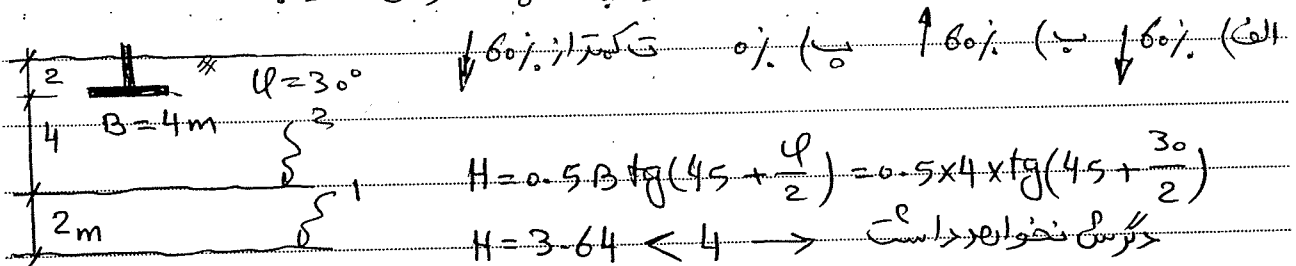 الف) 60٪ ↓ ب) 60٪ ↑ پ) 0٪ ت کمتر از 60٪ ↓
2
φ=30°
4 B=4m 2
H=0.5B tg(45+φ/2)=0.5×4×tg(45+30/2)
1
2m
H=3.64 < 4 → نخواهد داشت